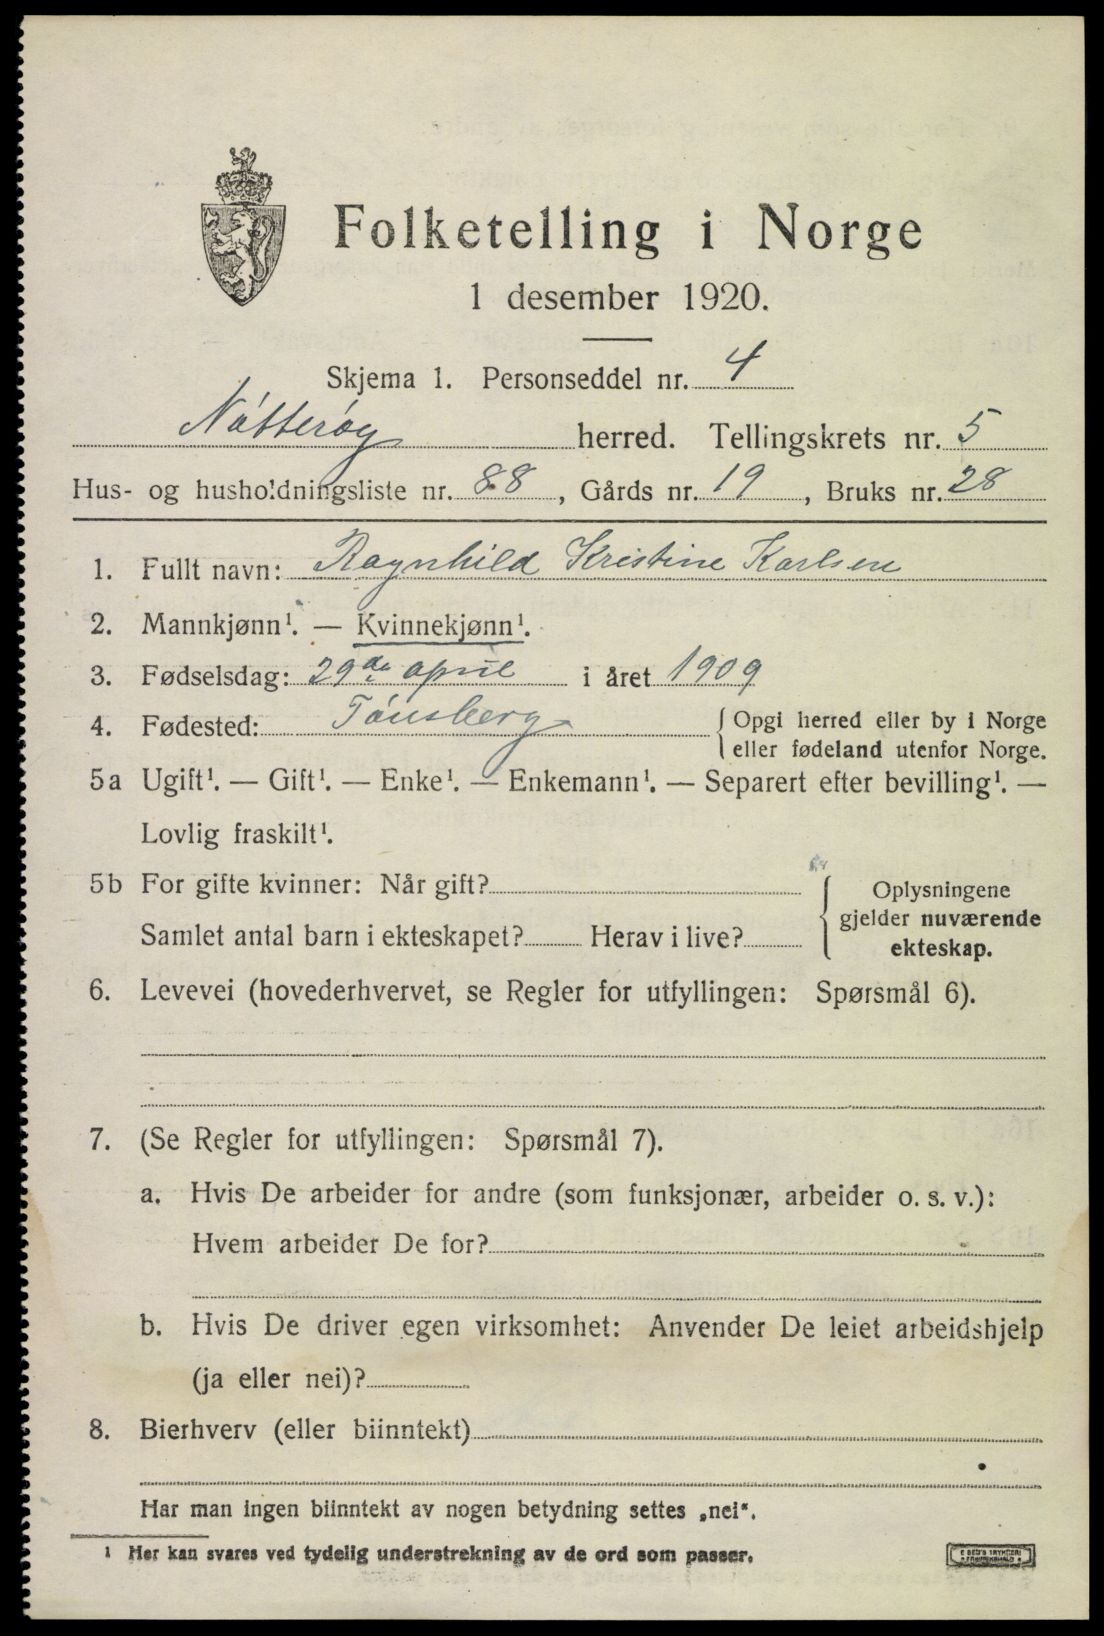 Folketelling i Norge
1 desember 1920.
Skjema 1. Personseddel nr. 4
Nøtterøy herred. Tellingskrets nr. 5
Hus- og husholdningsliste nr. 88, Gårds nr. 19, Bruks nr. 28
1. Fullt navn: Ragnhild Kristine Karlsen
2. Mannkjønn¹. — Kvinnekjønn¹.
3. Fødselsdag: 29de april i året 1909
4. Fødested: Tønsberg { Opgi herred eller by i Norge
eller fødeland utenfor Norge.
5a Ugift¹. — Gift¹. — Enke¹. — Enkemann¹. — Separert efter bevilling¹. —
Lovlig fraskilt¹.
5b For gifte kvinner: Når gift?
Samlet antal barn i ekteskapet? Herav i live?
{ Oplysningene
gjelder nuværende
ekteskap.
6. Levevei (hovederhvervet, se Regler for utfyllingen: Spørsmål 6).
7. (Se Regler for utfyllingen: Spørsmål 7).
a. Hvis De arbeider for andre (som funksjonær, arbeider o. s. v.):
Hvem arbeider De for?
b. Hvis De driver egen virksomhet: Anvender De leiet arbeidshjelp
(ja eller nei)?
8. Bierhverv (eller biinntekt)
Har man ingen biinntekt av nogen betydning settes „nei".
¹ Her kan svares ved tydelig understrekning av de ord som passer.